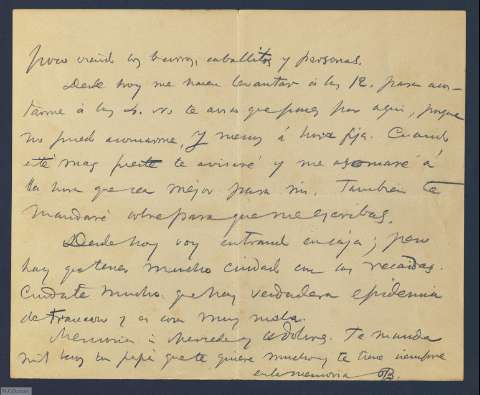 poco viendo los burros, caballitos y personas.
Desde hoy me hacen levantar á las 12. para acos-
tarme á las 4. no te aviso que pases por aqui, porque
no puedo asomarme, y menos á hora fija. Cuando
esté mas fuerte te avisaré y me asomaré á
la hora que sea mejor para mi. Tambien te
mandaré sobre para que me escribas.
Desde hoy voy entrando en caja; pero
hay que tener mucho cuidado con las recaidas.
Cuidate mucho que hay verdadera epidemia
de y es cosa muy mala.
Memorias á Mercedes y Te manda
mil besos tu papá que te quiere mucho y te tiene siempre
en la memoria B.